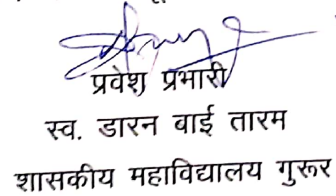 प्रवेश प्रभारी
स्व. डारन बाई तारम
शासकीय महाविद्यालय गुरूर